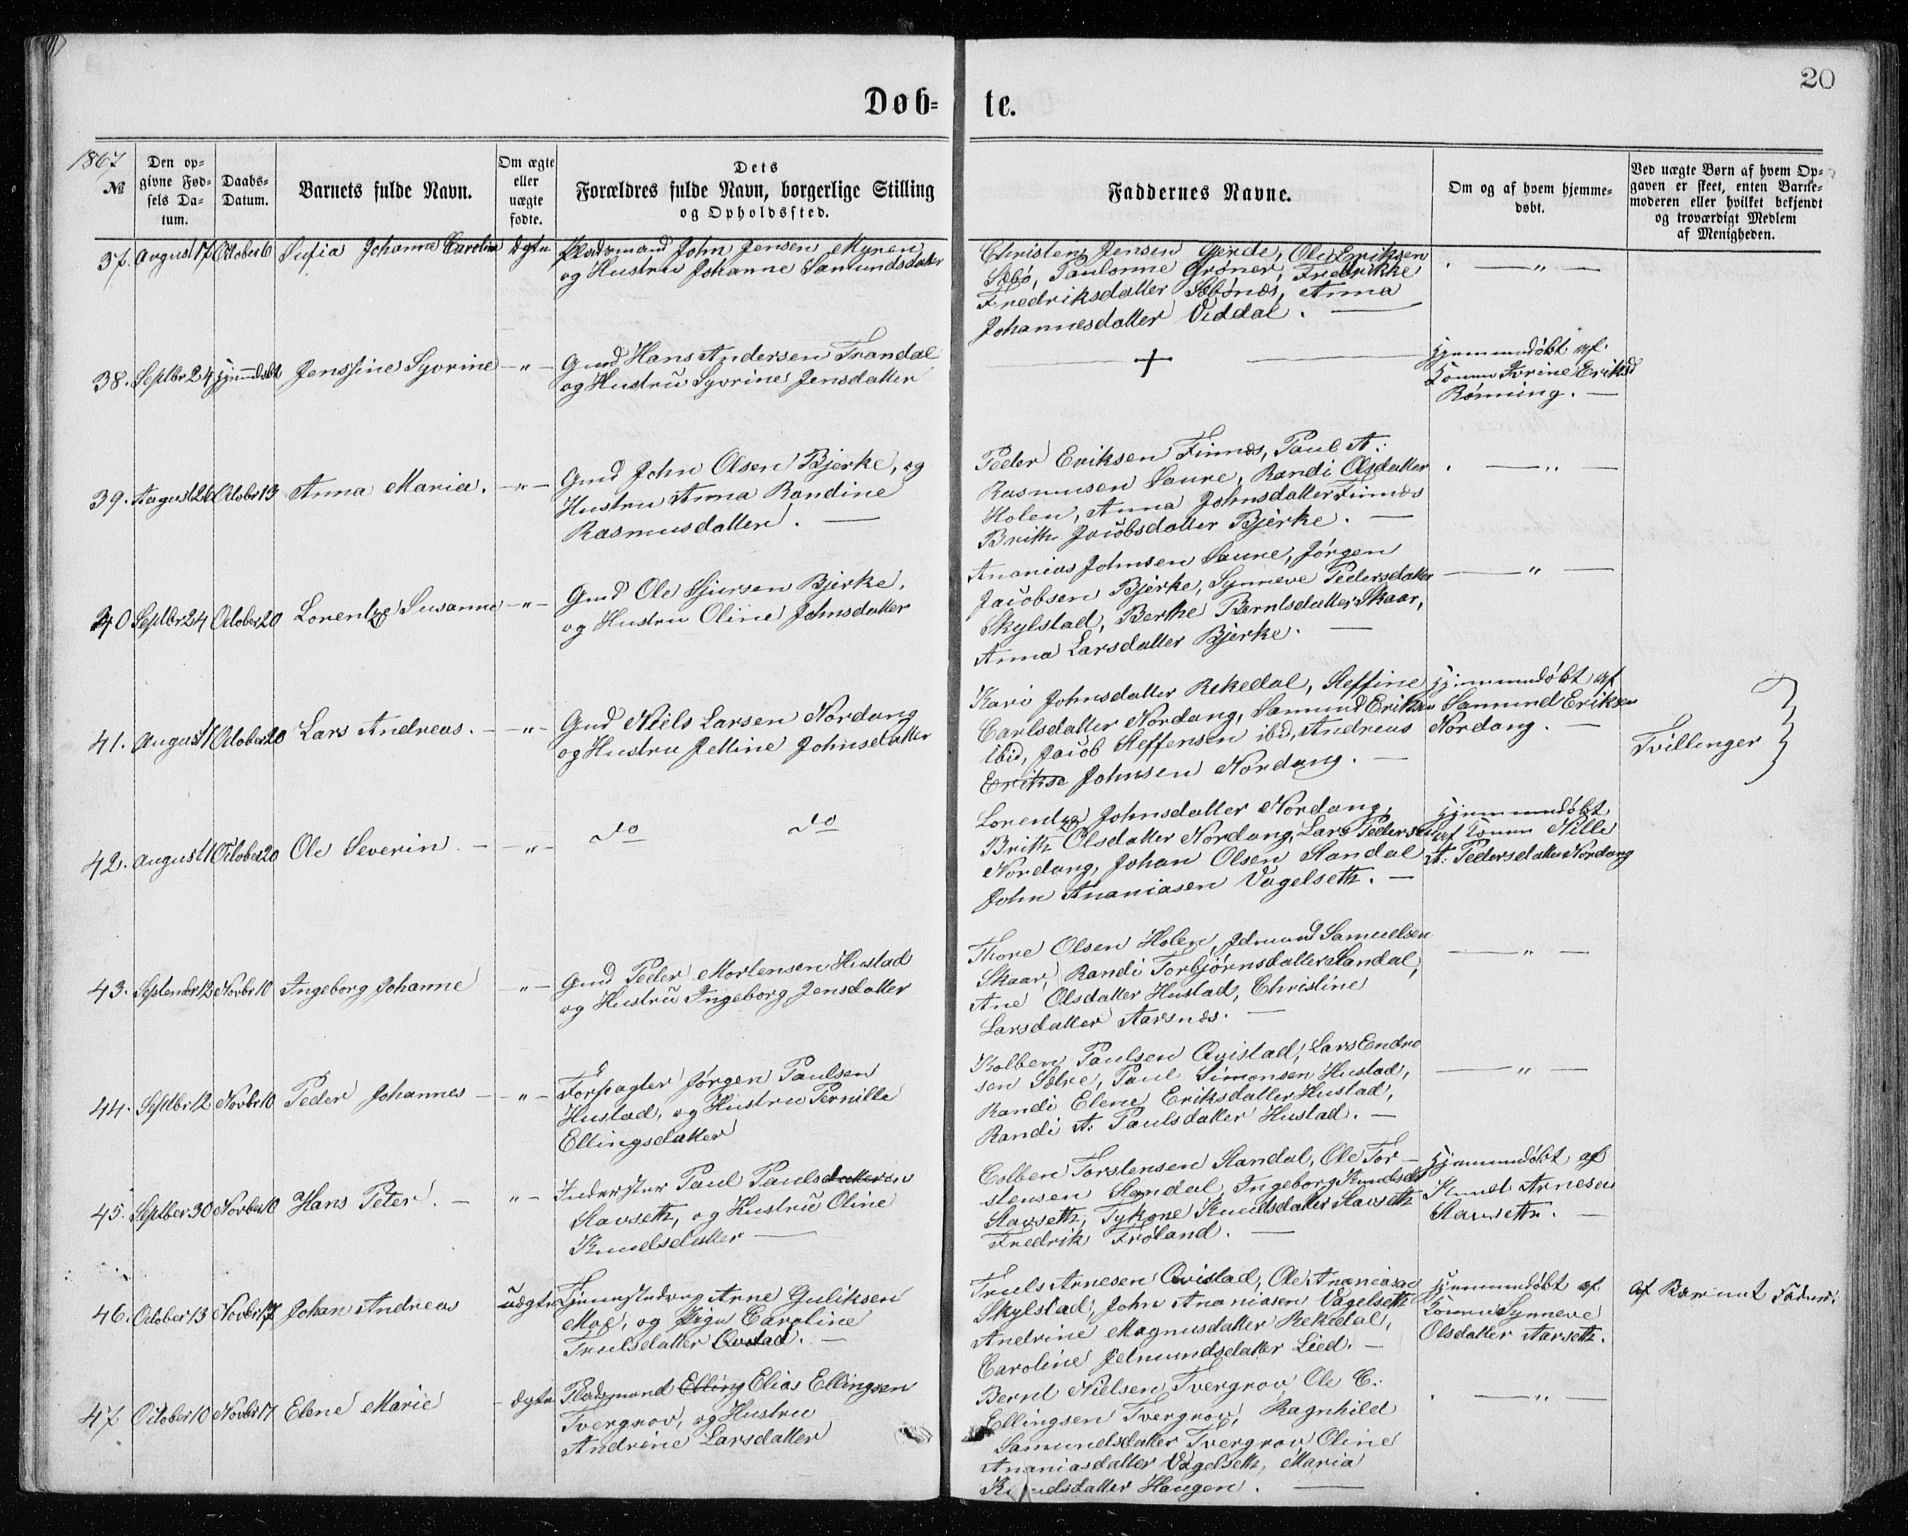 20
Døb-
te.
1867
№
Den op-
givne Fød-
sels Da-
tum.
Daabs-
Datum.
Barnets fulde Navn.
Om ægte
eller
uægte
fødte.
Dets
Forældres fulde Navn, borgerlige Stilling
og Opholdssted.
Faddernes Navne.
Om og af hvem hjemme-
døbt.
Ved uægte Børn af hvem Op-
gaven er skeet, enten Barne-
moderen eller hvilket bekjendt
og troværdigt Medlem
af Menigheden.
37. August 17 October 6 Sufia Johanne Caroline ægte Pladsmand John Jensen Myren
og Hustru Johanne Samundsdatter
Christen Jensen Gjerde, Ole Eriksen
Sæbö, Paulonne Gröner, Fredrikke
Fredriksdatter Sæbönæs, Anna
Johannesdatter Viddal. —
— " —
38. Septbr 24 hjemmedöbt Jenssine Syvrine — " — Gmd Hans Andersen Trandal
og Hustru Syvrine Jensdatter
+
hjemmedöbt af
Konen Ivrine Eriksd
Rönning. —
39. August 26 Octobr 13 Anna Maria. — " — Gmd John Olsen Bjerke, og
Hustru Anna Randine
Rasmusdatter. —
Peder Eriksen Finnæs, Paul A:
Rasmusen Saure, Randi Olsdatter
Holen, Anna Johnsdatter Finnæs
Brith Jacobsdatter Bjerke. —
— " —
40 Septbr 24 October 20 Lorentze Susanne — " — Gmd Ole Sjursen Bjerke,
og Hustru Oline Johnsdatter
Ananias Johnsen Saure, Jörgen
Jacobsen Bjerke, Synneve Pedersdatter
Skylstad, Berthe Berntsdatter Skaar,
Anna Larsdatter Bjerke. —
— " —
41. August 1 October 20 Lars Andreas. — " — Gmd Niels Larsen Nordang
og Hustru Jettine Johnsdatter
Kari Johnsdatter Rekedal, Steffine
Carlsdatter Nordang, Samund Eriksen
ibid, Jacob Steffensen ibd, Andreas
Erikse Johnsen Nordang. —
hjemmedöbt af
Samund Eriksen
Nordang. —
Tvillinger
42. August 1 October 20 Ole Severin — " — do do
Lorentze Johnsdatter Nordang,
Brith Olsdatter Nordang, Lars Pedersen
Nordang, Johan Olsen Standal
John Ananiasen Vagelseth. —
hjemmedöbt
af Konen Nille
A: Pedersdatter Nordang
43. Septembr 12 Novbr 10 Ingeborg Johanne " — Gmd Peder Mortensen Hustad
og Hustru Ingeborg Jensdatter
Thore Olsen Holen, Jetmund Samuelsen
Skaar, Randi Torbjørnsdatter Standal,
Ane Olsdatter Hustad, Christine
Larsdatter Aarsnæs. —
— " —
44. Septbr 12 Novbr 10 Peder Johannes — " — Forpagter Jørgen Paulsen
Hustad, og Hustru Pernille
Ellingsdatter
Kolben Paulsen Qvistad, Lars Endre
sen Sætre, Paul Simonsen Hustad,
Randi Elene Eriksdatter Hustad,
Randi A: Paulsdatter Hustad. —
— " —
45. Septbr 30 Novbr 10 Hans Peter. — " — Inderster Paul Paulsdatteren
Stavseth, og Hustru Oline
Knudsdatter —
Colben Torstensen Standal, Ole Tor-
stensen Standal, Ingeborg Knudsdt
Stavseth, Tykone Knudsdatter Stavseth
Fredrik Fröland. —
hjemmedöbt af
Knud Arnesen
Stavseth. —
46. October 13 Novbr 17 Johan Andreas uægte Tjenestedreng Arne Guliksen
Moe, og Pige Caroline
Trulsdatter Qvistad. —
Truls Arnesen Qvistad, Ole Ananiasen
Skylstad, John Ananiasen Vagelseth
Andrine Magnusdatter Rekedal,
Caroline Jetmundsdatter Lied. —
hjemmedöbt af
Konen Synneve
Olsdatter Aarseth.
af Barnet Fader
47 October 10 Novbr 17 Elene Marie ægte Pladsmand Elling Elias Ellingsen
Tvergrov, og Hustru
Andrine Larsdatter
Bernt Nielsen Tvergrov Ole C:
Ellingsen Tvergrov, Ragnhild
Samundsdatter Tvergrov Oline
Ananiasdatter Vagelseth, Maria
Knudsdatter Haugen. —
— " —